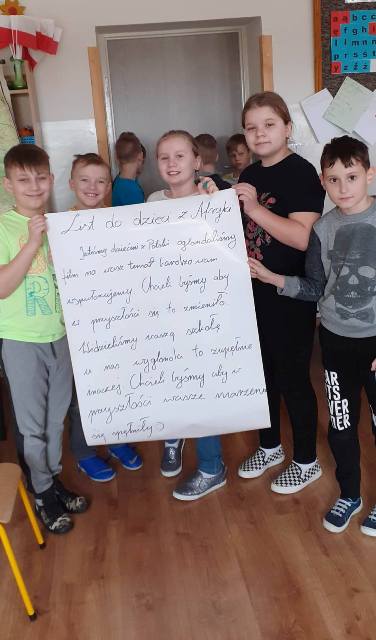 List do dzieci z Afryki
Jesteśmy dziećmi z Polski oglądaliśmy
film na wasz temat bardzo wam
współczujemy Chcieli byśmy aby
w przyszłości się to zmieniło
Widzieliśmy waszą szkołę
u nas wygląda to zupełnie
inaczej Chcieli byśmy aby w
przyszłości wasze marzenia
się spełniły